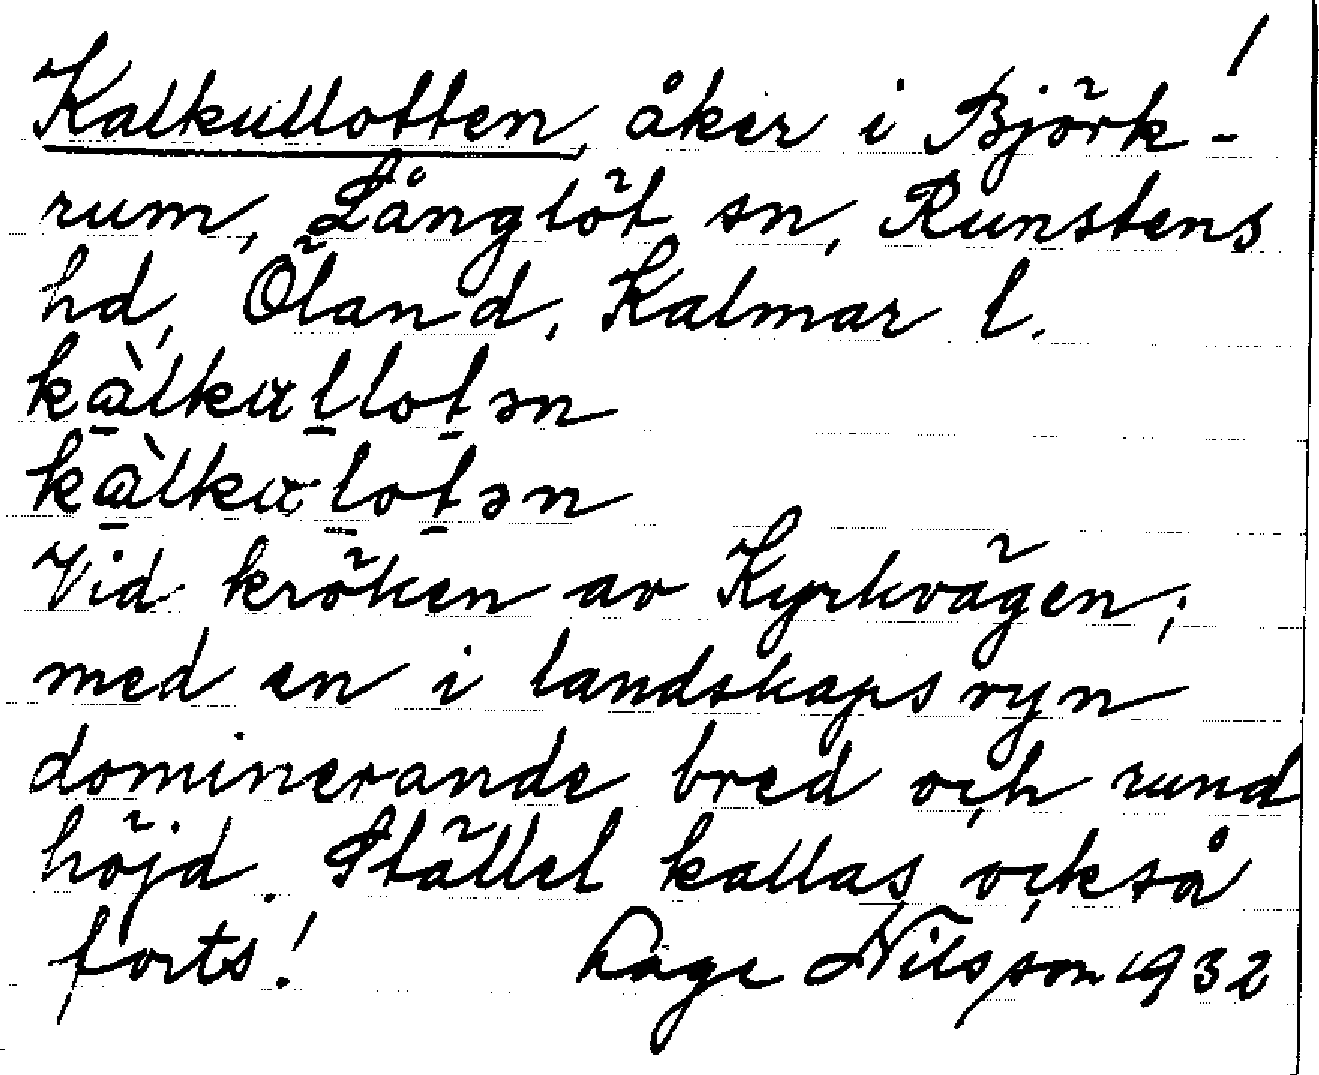 1
Kalkullotten, åker i Björk-
rum, Långlöt sn, Runstens
hd, Öland, Kalmar l.
kàlkullotən
kàlkulotən
Vid kröken av Kyrkvägen;
med en i landskapsvyn
dominerande bred och rund
höjd. Stället kallas också
forts! Åage Nilsson 1932